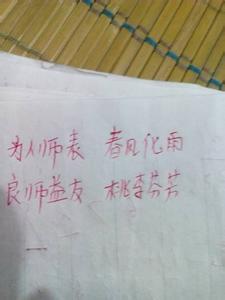 为人师表 春风化雨
良师益友 桃李芬芳